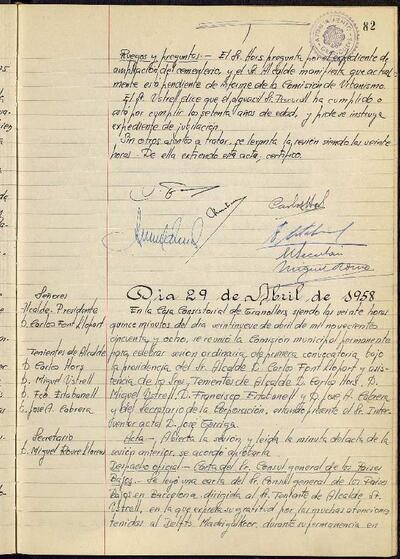 82
Ruegos y preguntas.- El Sr. Hors pregunta por el expediente de
ampliación del cementerio, y el Sr. Alcalde manifiesta que actual-
mente está pendiente de informe de la Comisión de Urbanismo.
El Sr. Ustrell dice que el alguacil Sr. Pascual ha cumplido o
está por cumplir los setenta años de edad, y pide se instruya
expediente de jubilación.
Sin otros asuntos a tratar, se levanta la sesión siendo las veinte
horas. De ella extiendo esta acta, certifico.
Carlos Hors
Miguel Rovira
Señores
Alcalde-Presidente
D. Carlos Font Llopart
Tenientes de Alcalde
D. Carlos Hors
D. Miguel Ustrell
D. Fco. Estabanell
D. José A. Cabrera
Secretario
D. Miguel
Dia 29 de Abril de 1958
En la Casa Consistorial de Granollers, siendo las veinte horas
quince minutos del día veintinueve de abril de mil novecientos
cincuenta y ocho, se reunió la Comisión municipal permanente
para celebrar sesión ordinaria de primera convocatoria, bajo
la presidencia del Sr. Alcalde D. Carlos Font Llopart y asis-
tencia de los Sres. Tenientes de Alcalde D. Carlos Hors, D.
Miguel Ustrell, D. Francisco Estabanell y D. José A. Cabrera
y del Secretario de la Corporación, estando presente el Sr. Inter-
ventor actal D. José Garriga.
Acta.- Abierta la sesión y leída la minuta del acta de la
sesión anterior, se acordó aprobarla.
Despacho oficial.- Carta del Sr. Consul general de los Países
Bajos.- Se leyó una carta del Sr. Consul general de los Países
Bajos en Barcelona, dirigida al Sr. Teniente de Alcalde Sr.
Ustrell, en la que expresa su gratitud por las muchas atenciones
tenidas al Delfts Madrigalkoor, durante su permanencia en